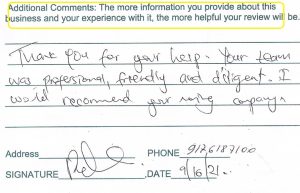 Additional Comments: The more information you provide about this
business and your experience with it, the more helpful your review will be.
Thank you for your help. Your team
was professional, friendly and diligent. I
would recommend your moving company
Address
PHONE 9126187100
SIGNATURE
DATE 9/16/21.